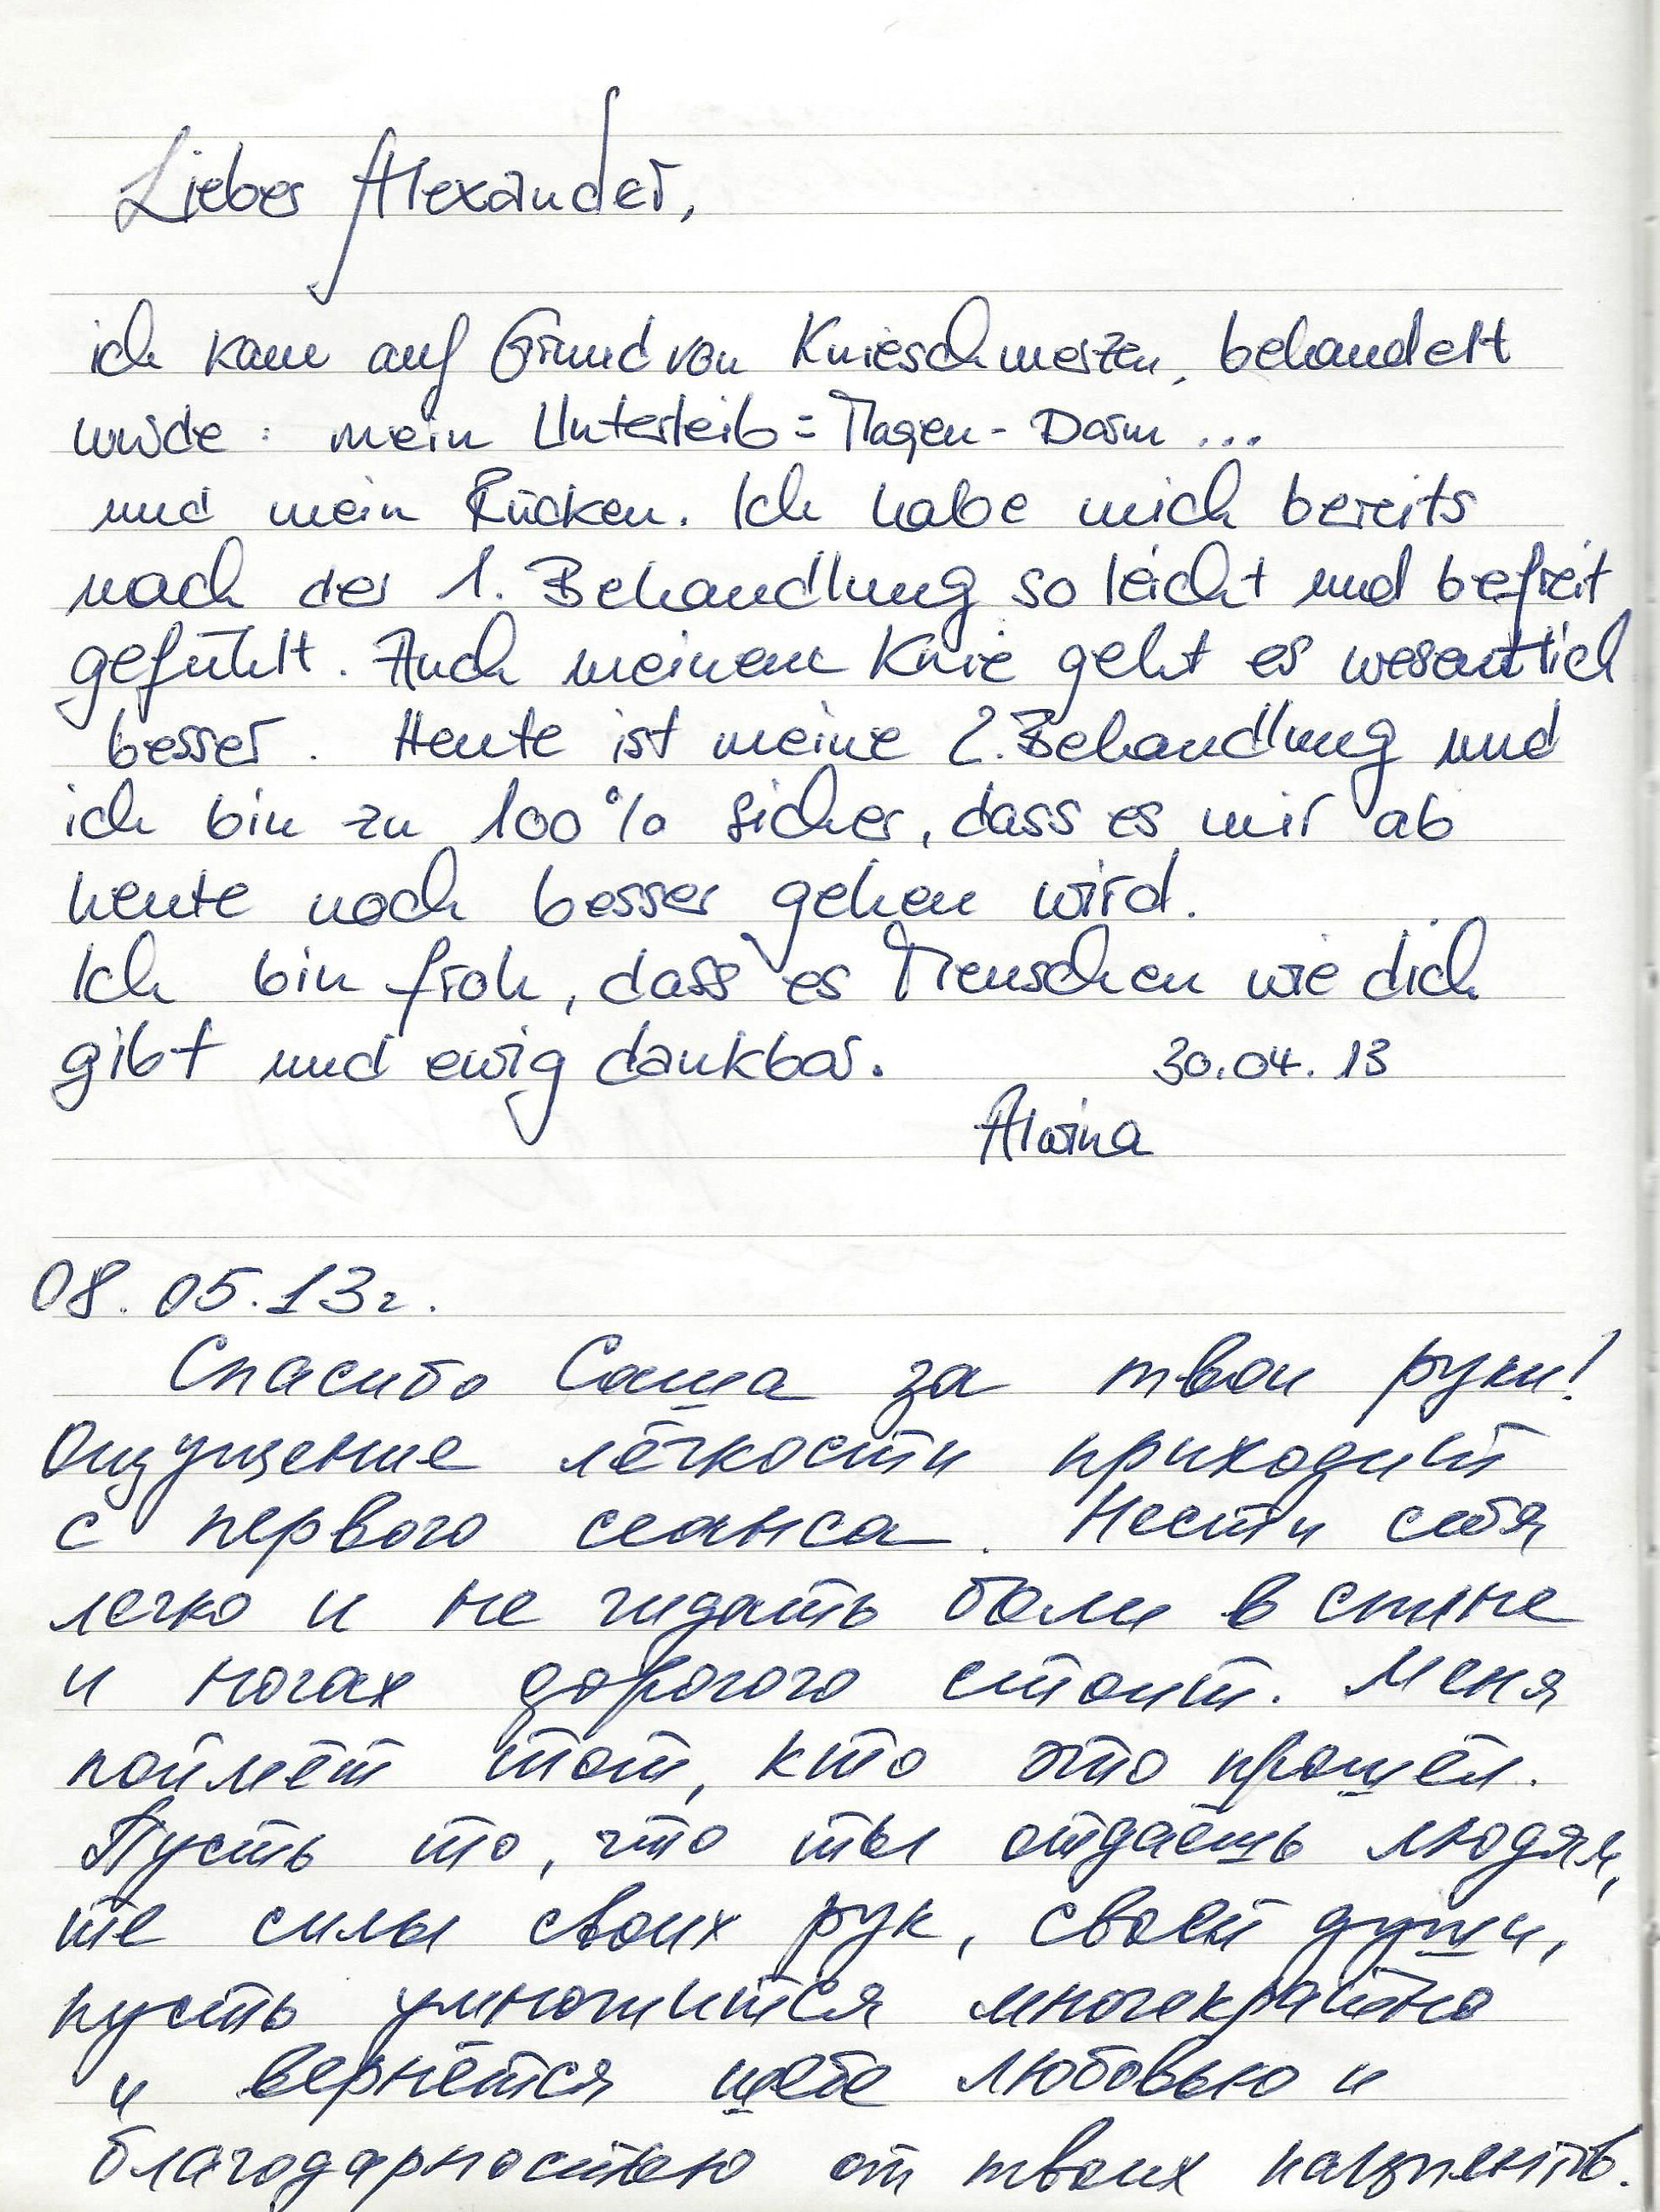 Lieber Alexander,
ich kam auf Grund von Knieschmerzen, behandelt
wurde: mein Unterleib = Magen - Darm ...
und mein Rücken. Ich habe mich bereits
nach der 1. Behandlung so leicht und befreit
gefühlt. Auch meinem Knie geht es wesentlich
besser. Heute ist meine 2. Behandlung und
ich bin zu 100% sicher, dass es mir ab
heute noch besser gehen wird.
Ich bin froh, dass es Menschen wie dich
gibt und ewig dankbar. 30.04.13
Alwina
08.05.13г.
Спасибо Саша за твои руки!
Ощущение лёгкости приходит
с первого сеанса. Нести себя
легко и не ждать боли в спине
и ногах дорогого стоит. Меня
поймёт тот, кто это прошёл.
Пусть то, что ты отдаёшь людям,
те силы своих рук, своей души,
пусть умножится многократно
и вернётся тебе любовью и
благодарностью от твоих пациентов.